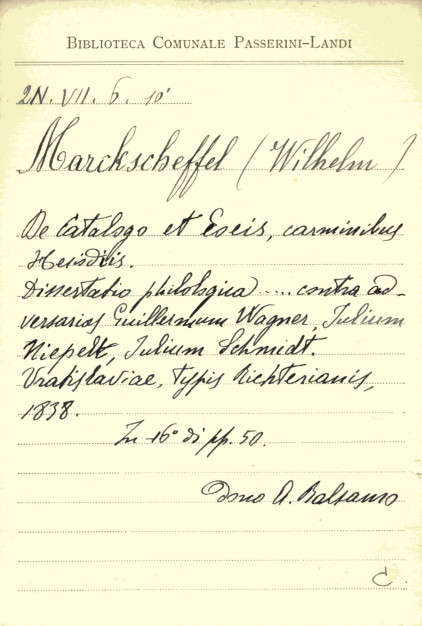 BIBLIOTECA COMUNALE PASSERINI-LANDI
2N. VII. 6. 10'
Marckscheffel (Wilhelm)
De Catalogo et Eoeis, carminibus
Hesiodeis.
Dissertatio philologica ..... contra ad-
versarios Guillermum Wagner, Julium
Niepelt, Julium Schmidt.
Vratislaviae, typis Richterianis,
1838.
In 16° di pp. 50.
Dono A. Balsamo
C.